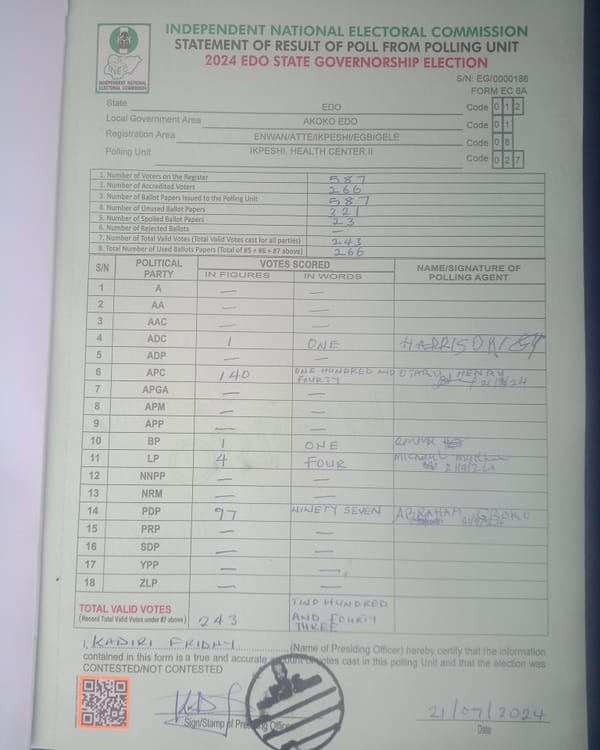 INDEPENDENT NATIONAL ELECTORAL COMMISSION
STATEMENT OF RESULT OF POLL FROM POLLING UNIT
2024 EDO STATE GOVERNORSHIP ELECTION
INEC
INDEPENDENT NATIONAL
ELECTORAL COMMISSION
S/N: EG/0000186
FORM EC 8A
State EDO Code 0 1 2
Local Government Area AKOKO EDO Code 0 1
Registration Area ENWAN/ATTE/IKPESHI/EGBIGELE Code 0 8
Polling Unit IKPESHI, HEALTH CENTER II Code 0 2 7
1. Number of Voters on the Register 587
2. Number of Accredited Voters 266
3. Number of Ballot Papers Issued to the Polling Unit 587
4. Number of Unused Ballot Papers 321
5. Number of Spoiled Ballot Papers 23
6. Number of Rejected Ballots —
7. Number of Total Valid Votes (Total Valid Votes cast for all parties) 243
8. Total Number of Used Ballots Papers (Total of #5 + #6 + #7 above) 266
S/N POLITICAL PARTY VOTES SCORED NAME/SIGNATURE OF POLLING AGENT
IN FIGURES IN WORDS
1 A — —
2 AA — —
3 AAC — —
4 ADC 1 ONE HARRISON
5 ADP — —
6 APC 140 ONE HUNDRED AND FOURTY HENRY
7 APGA — —
8 APM — —
9 APP — —
10 BP 1 ONE
11 LP 4 FOUR Michael
12 NNPP — —
13 NRM — —
14 PDP 97 NINETY SEVEN ABRAHAM
15 PRP — —
16 SDP — —
17 YPP — —
18 ZLP — —
TOTAL VALID VOTES
(Record Total Valid Votes under #7 above) 243 TWO HUNDRED AND FOURTY THREE
I, KADIRI FRIDAY (Name of Presiding Officer) hereby certify that the information
contained in this form is a true and accurate account of votes cast in this polling Unit and that the election was
CONTESTED/NOT CONTESTED
21/09/2024
Sign/Stamp of Presiding Officer Date